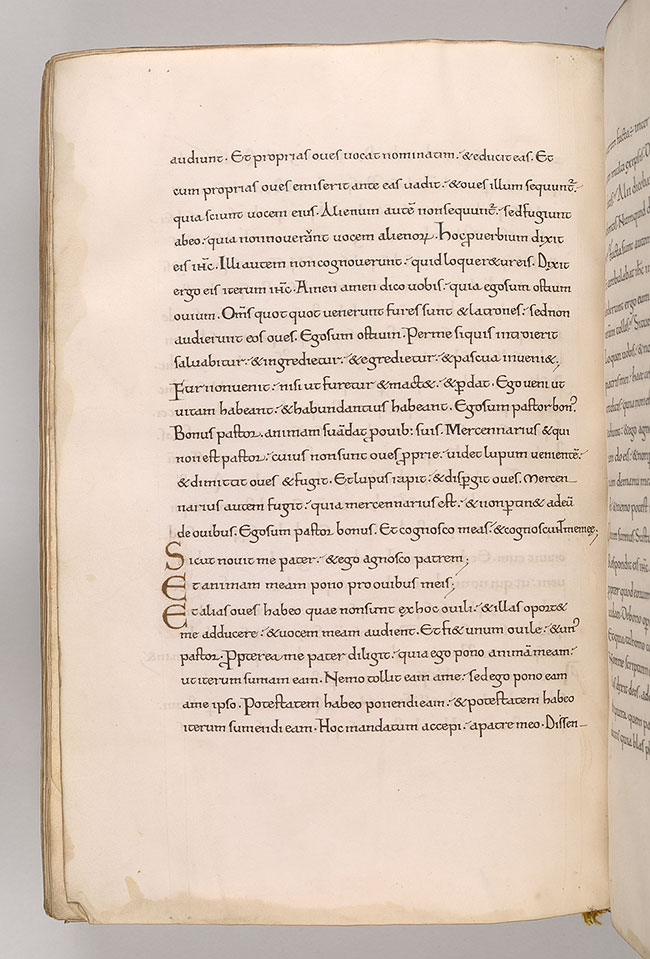 audiunt. Et proprias oves vocat nominatim: & educit eas. Et
cum proprias oves emiserit ante eas vadit: & oves illum sequunt̃.
quia sciunt vocem eius. Alienum autē non sequunt̃: sed fugiunt
ab eo: quia non noverant vocem alienoꝝ. Hoc ꝓverbium dixit
eis ihc. Illi autem non cognoverunt: quid loquer& ur eis. Dixit
ergo eis iterum ihc. Amen amen dico vobis: quia ego sum ostium
ovium. Om̃s quot quot venerunt fures sunt & latrones: sed non
audierunt eos oves. Ego sum ostium. Per me si quis introierit
salvabitur: & ingredietur: & egredietur: & pascua inveni&;
Fur non venit: nisi ut furetur & mact& : & ꝑdat. Ego veni ut
vitam habeant: & habundantius habeant. Ego sum pastor bon᾿.
Bonus pastor. animam suā dat ꝓ ovib: suis. Mercennarius & qui
non est pastor: cuius non sunt oves ꝓprie: videt lupum venientē:
& dimittit oves & fugit. Et lupus rapit: & disꝑgit oves. Mercen-
narius autem fugit: quia mercennarius est: & non ꝑtin& ad eū
de ovibus. Ego sum pastor bonus. Et cognosco meas: & cognoscunt me meę;
Sicut novit me pater: & ego agnosco patrem;
Et animam meam pono pro ovibus meis;
Et alias oves habeo quae non sunt ex hoc ovili: & illas oport&
me adducere: & vocem meam audient. Et fi& unum ovile: & un᾿
pastor. Ꝓpterea me pater diligit: quia ego pono animā meam:
ut iterum sumam eam. Nemo tollit eam a me: sed ego pono eam
a me ipso. Potestatem habeo ponendi eam: & potestatem habeo
iterum sumendi eam. Hoc mandatum accepi: a patre meo. Dissen-